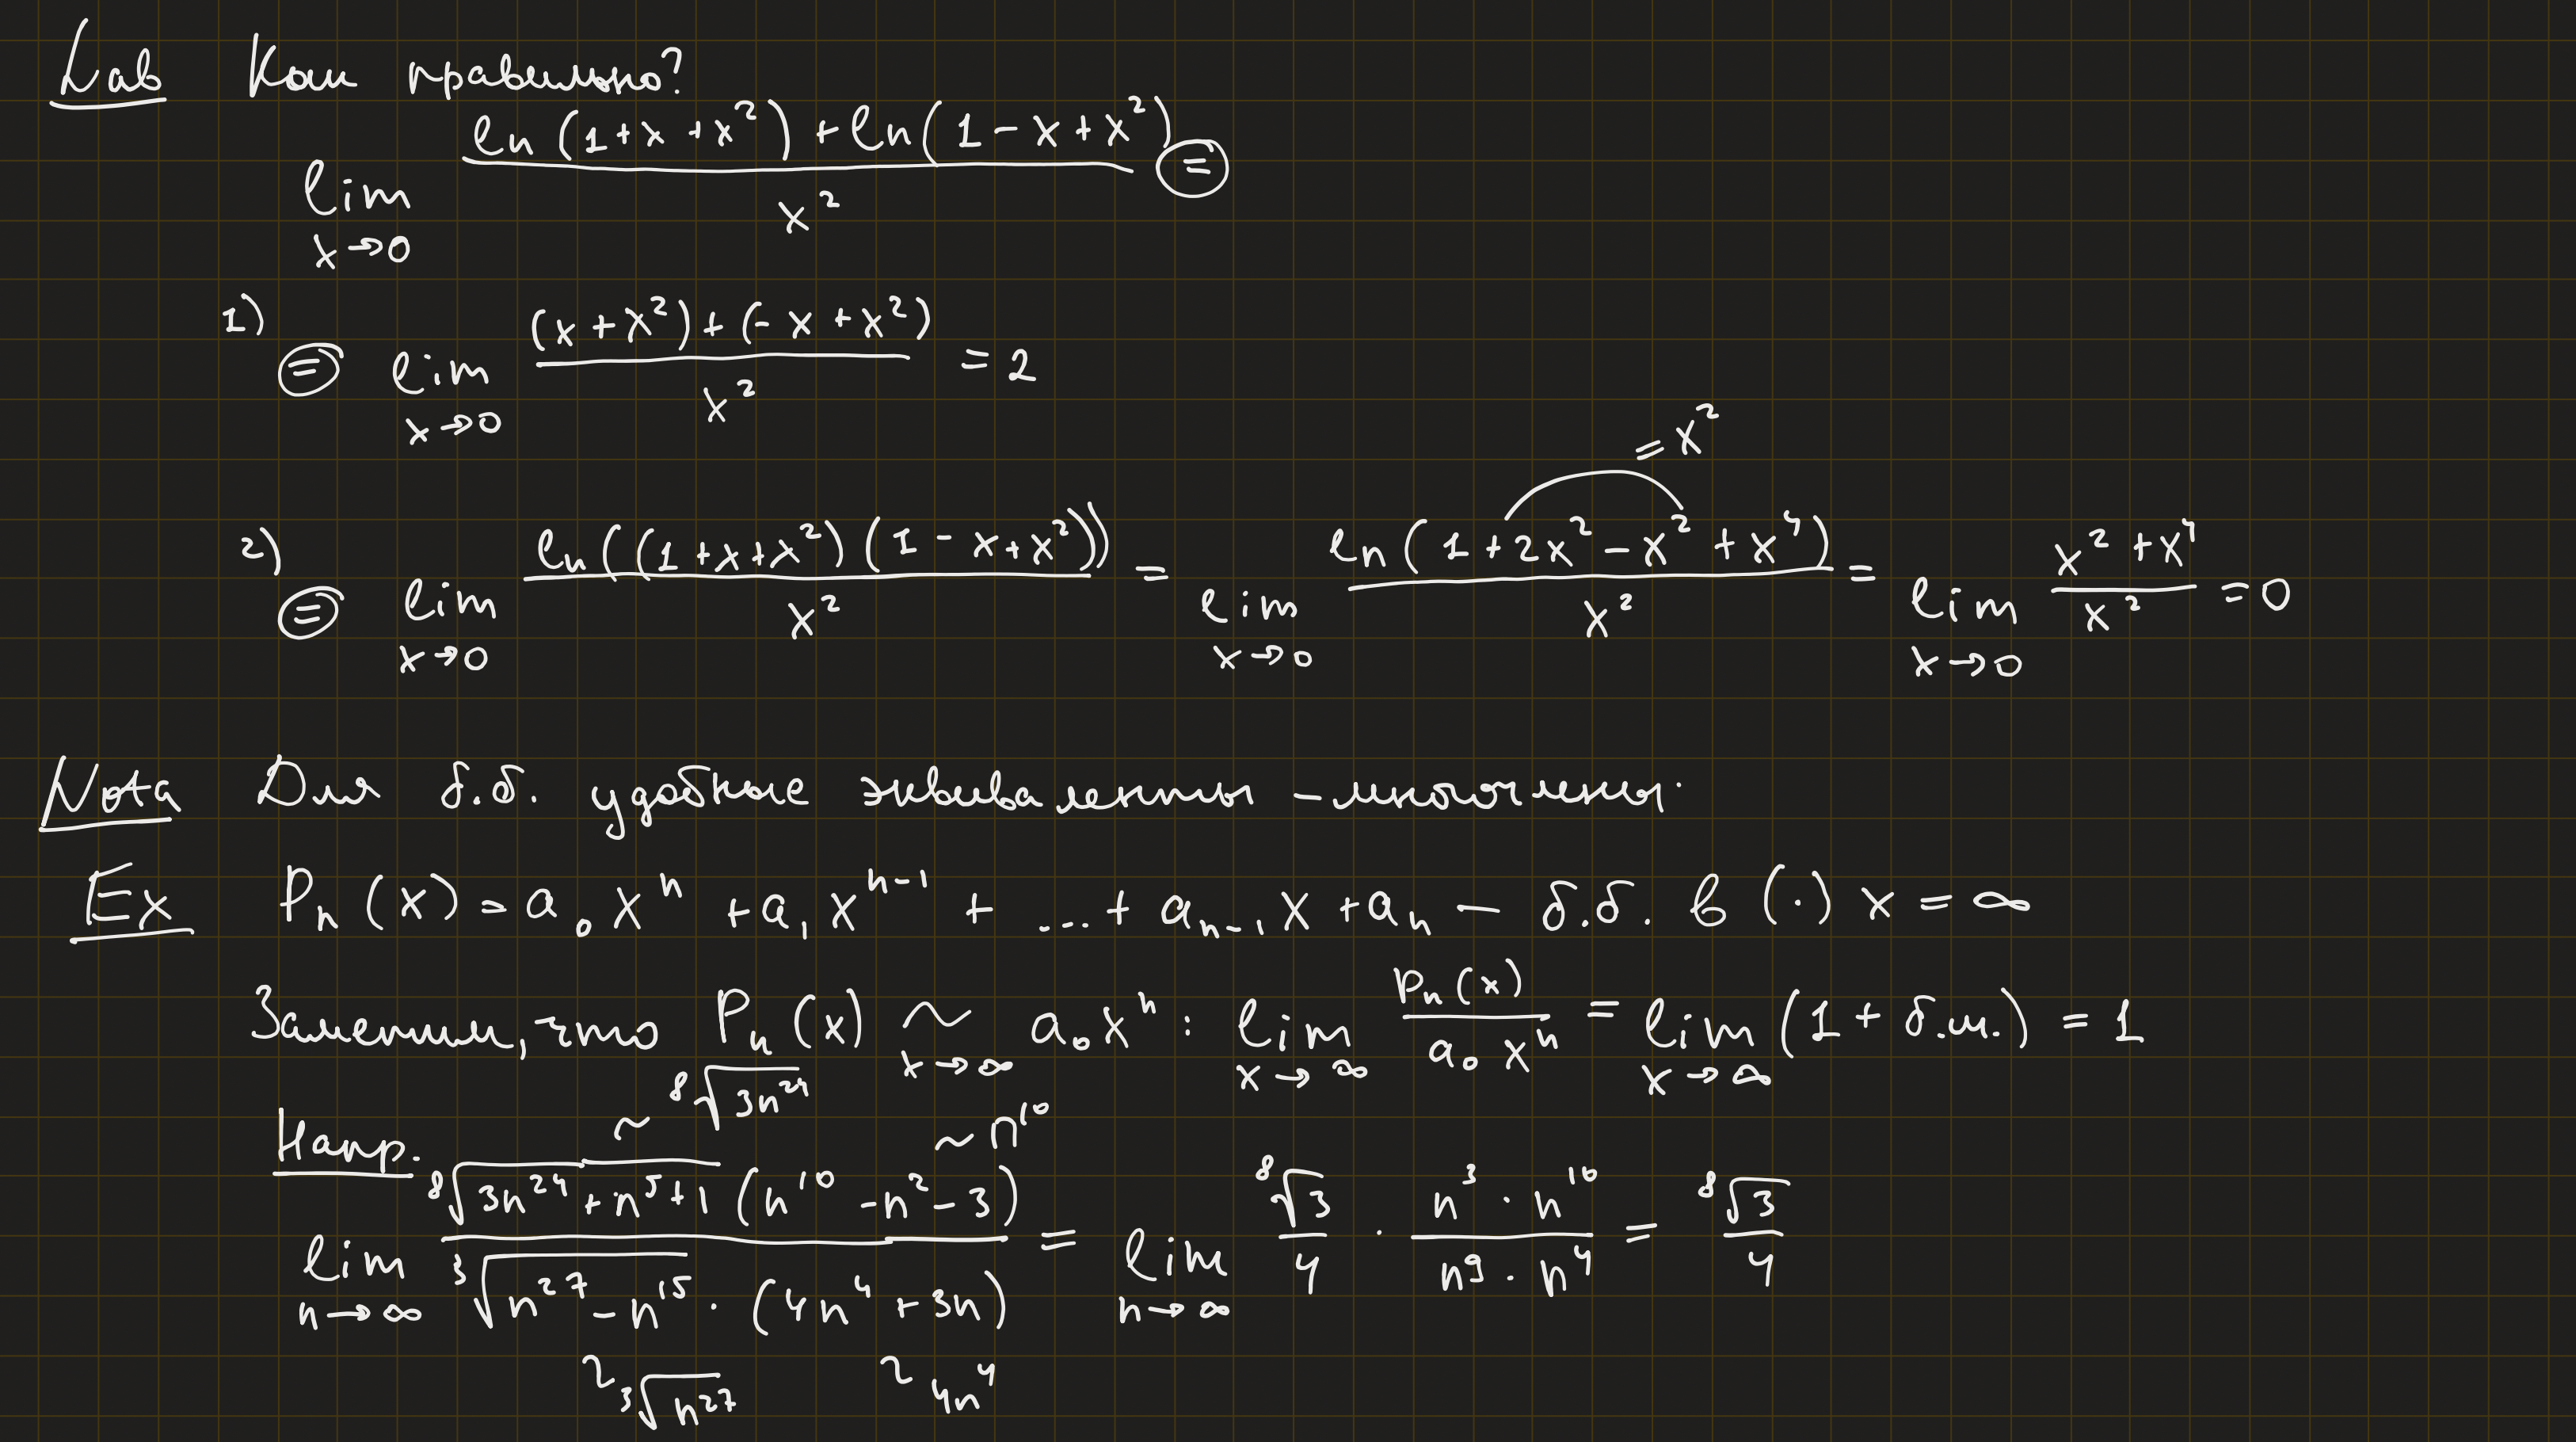 Lab Как правильно?
lim x→0 (ln(1+x+x²)+ln(1-x+x²))/x² =
1) = lim x→0 ((x+x²)+(-x+x²))/x² = 2
= x²
2) = lim x→0 ln((1+x+x²)(1-x+x²))/x² = lim x→0 ln(1+2x²-x²+x⁴)/x² = lim x→0 (x²+x⁴)/x² = 0
Nota Для б.б. удобные эквиваленты – многочлены.
Ex Pₙ(x) = a₀xⁿ + a₁xⁿ⁻¹ + ... + aₙ₋₁x + aₙ – б.б. в (·) x = ∞
Заметим, что Pₙ(x) ~ x→∞ a₀xⁿ : lim x→∞ Pₙ(x)/(a₀xⁿ) = lim x→∞ (1 + б.м.) = 1
~ ⁸√(3n²⁴) ~ n¹⁰
Напр.
lim n→∞ (⁸√(3n²⁴+n⁵+1) (n¹⁰-n²-3))/(³√(n²⁷-n¹⁵) · (4n⁴+3n)) = lim n→∞ ⁸√3/4 · (n³·n¹⁰)/(n⁹·n⁴) = ⁸√3/4
~ ³√(n²⁷) ~ 4n⁴